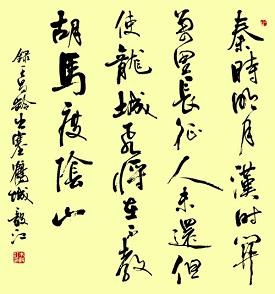 秦時明月漢時關
萬里長征人未還但
使龍城飛將在不教
胡馬度陰山
録王昌齡出塞城毅江